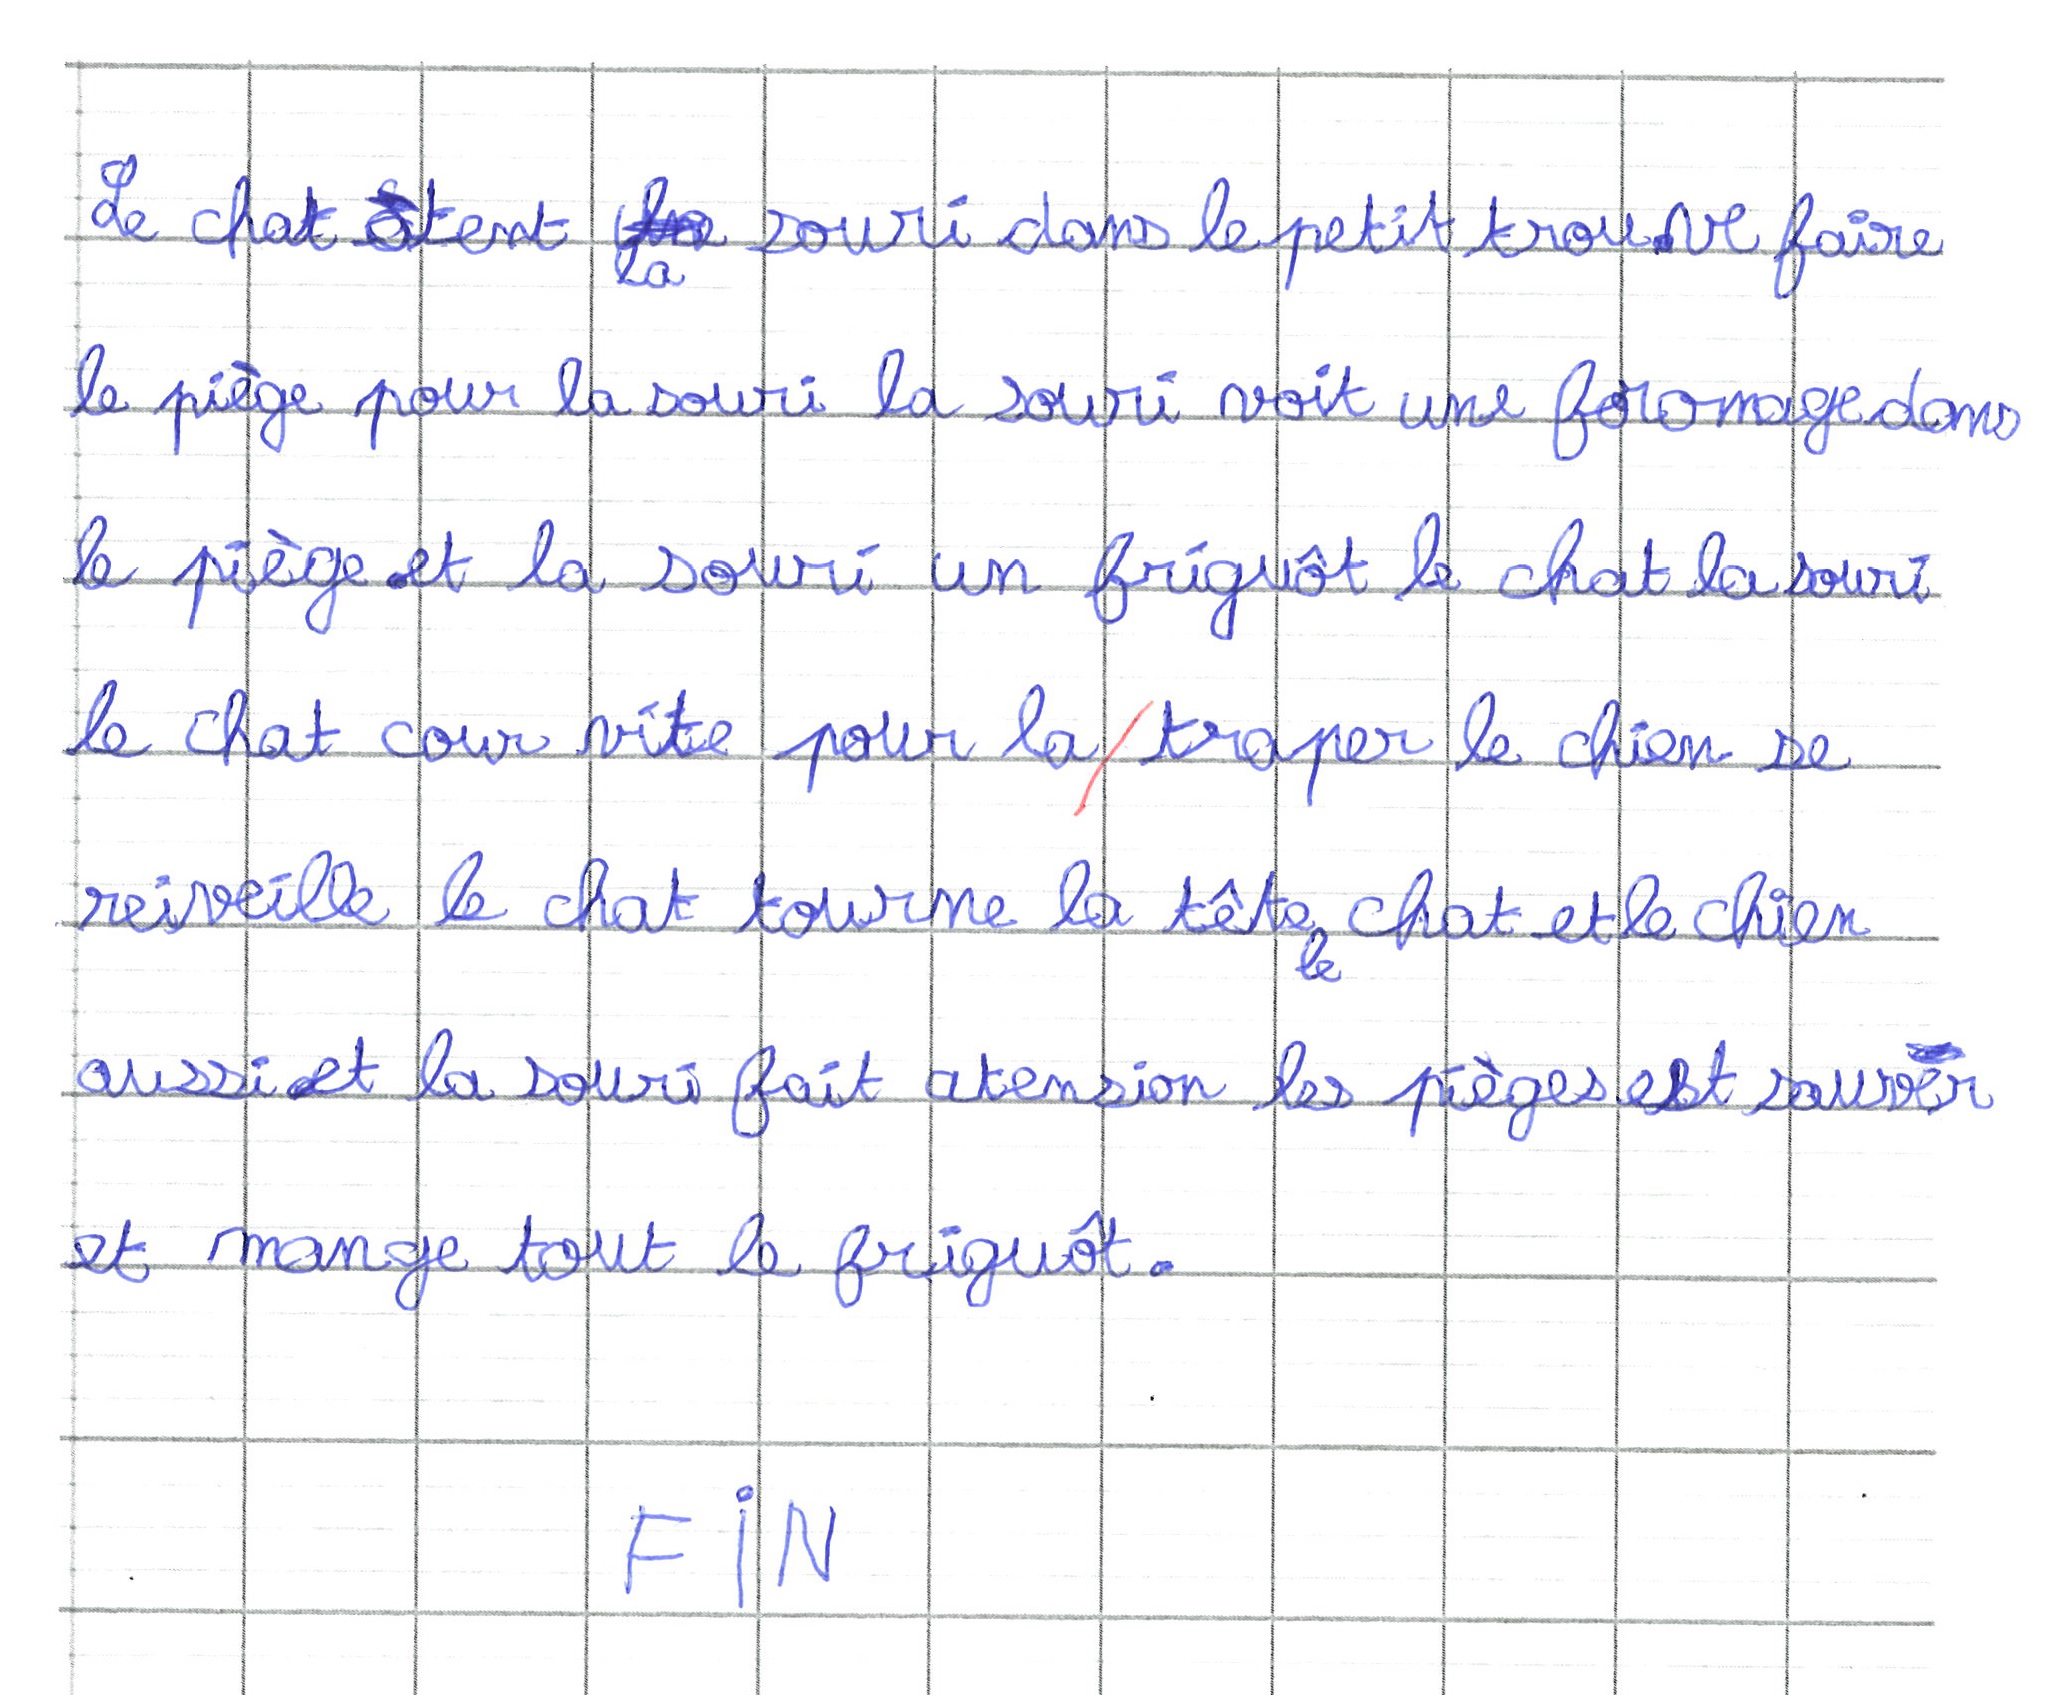 Le chat atent la souri dans le petit trou ve faire
le piège pour la souri la souri voit une foromage dans
le piège et la souri un friguôt le chat la souri
le chat cour vite pour la / traper le chien se
reiveille le chat tourne la tête le chat et le chien
aussi et la souri fait atension les pièges est sauver
et mange tout le friguôt.
FiN